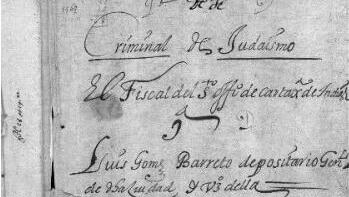 de
Criminal de Judaismo
El Fiscal del Sto offo de cartaxa de Indias
G D
Luis Gomz Barreto depositario Genl
de dha Ciudad y Vo della